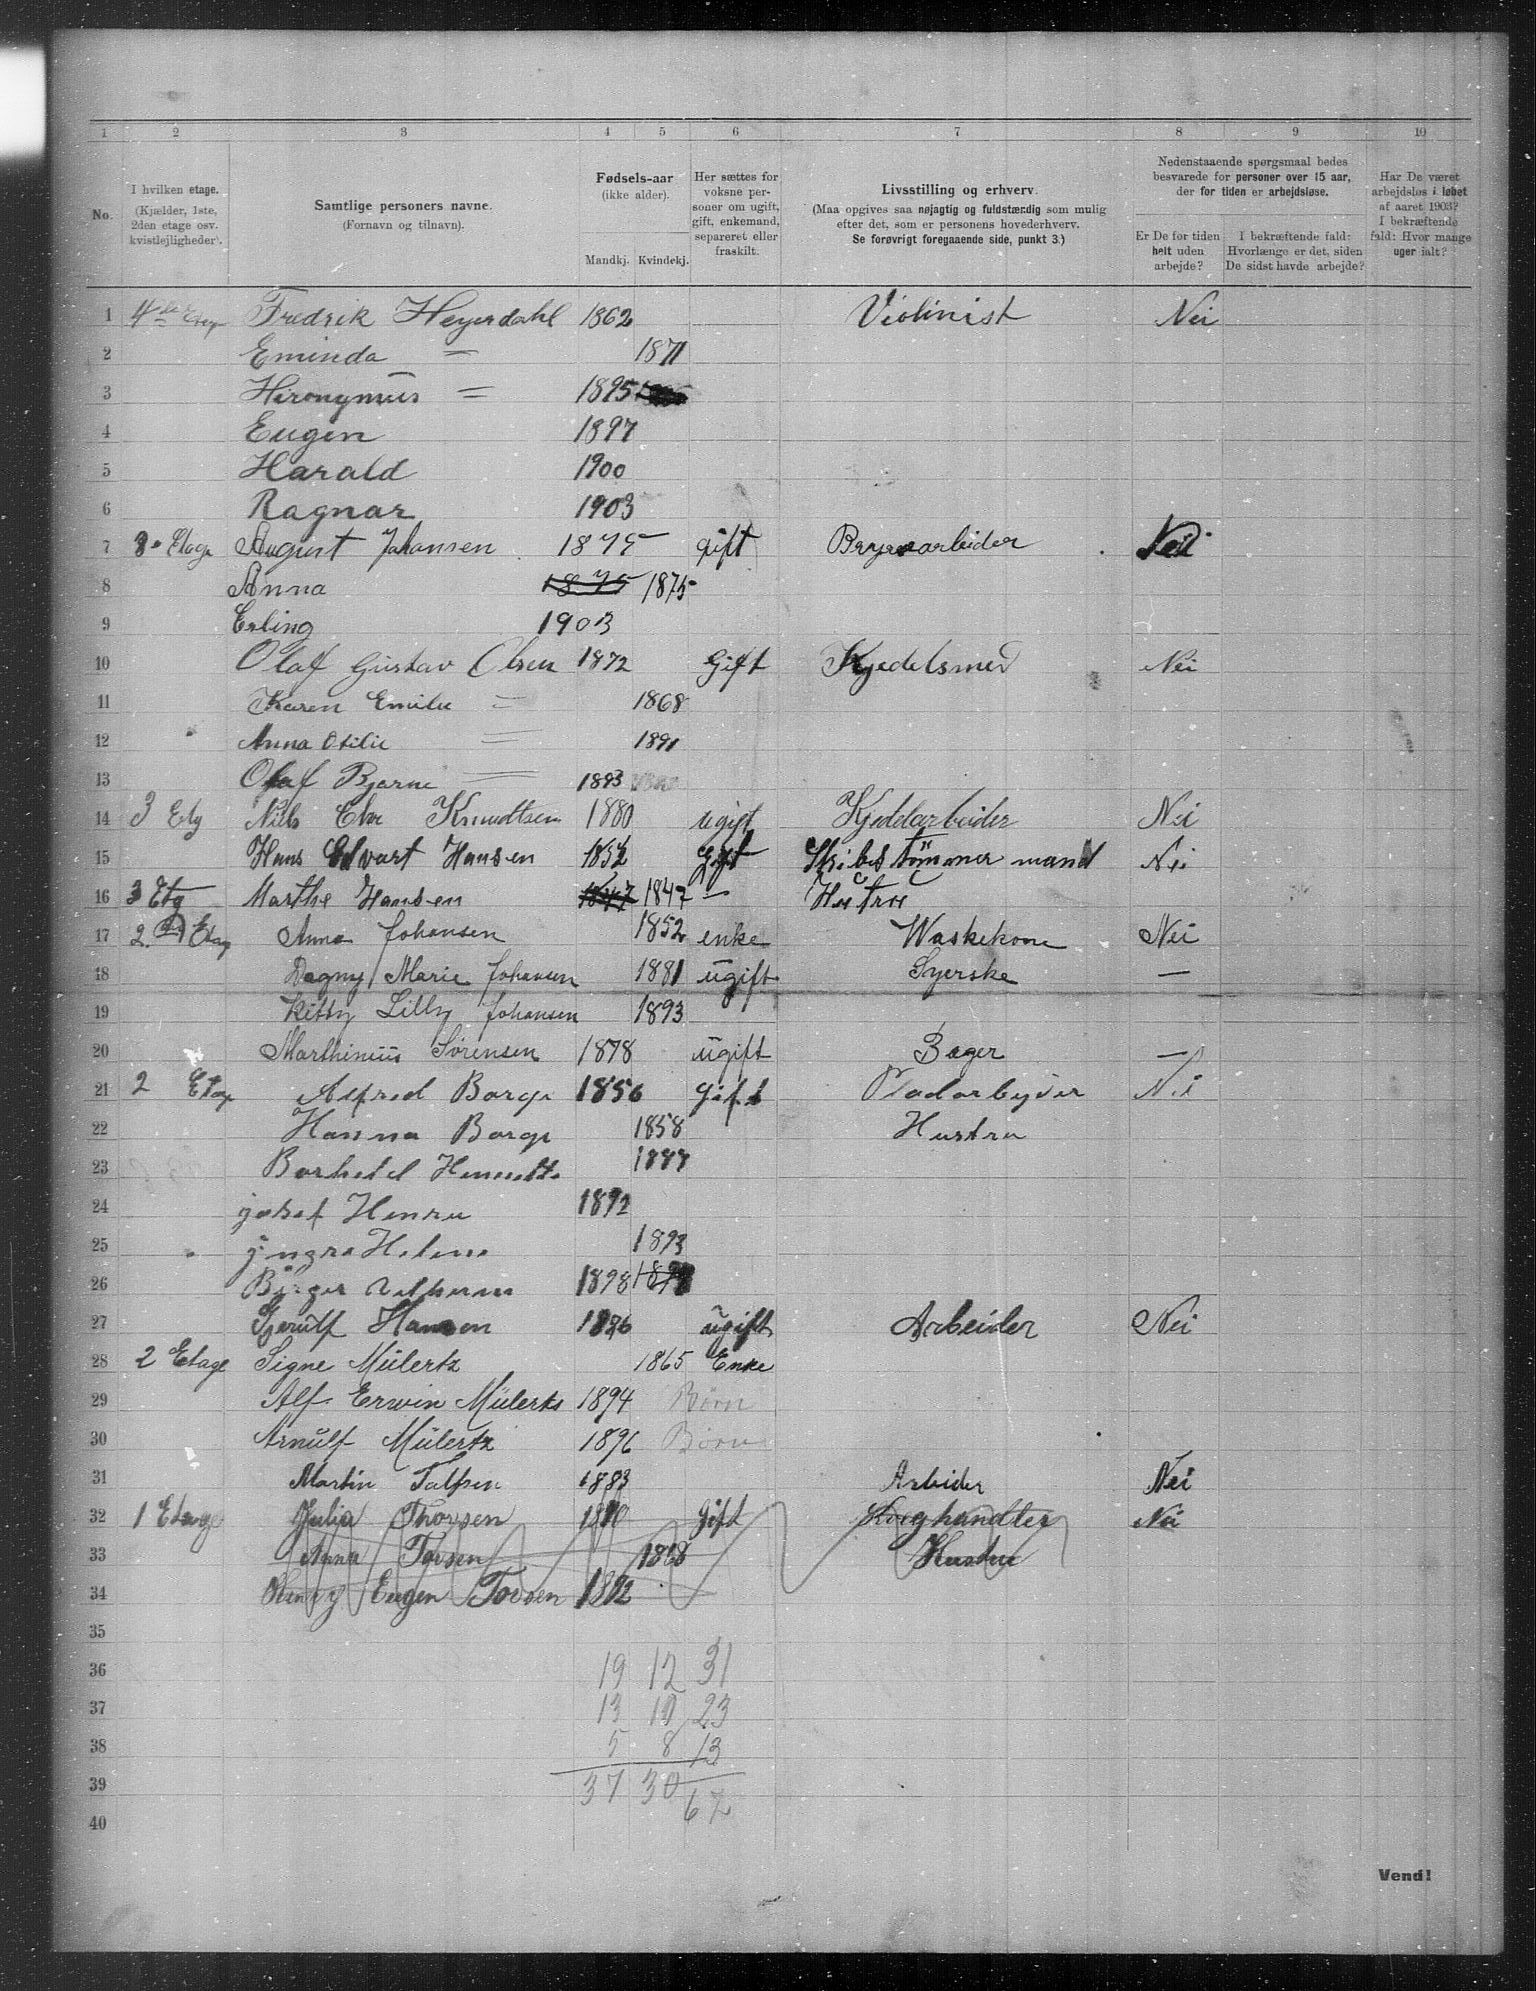 1 2 3 4 5 6 7 8 9 10
No.
I hvilken etage.
(Kjælder, 1ste,
2den etage osv.
kvistlejligheder).
Samtlige personers navne.
(Fornavn og tilnavn).
Fødsels-aar
(ikke alder).
Mandkj. Kvindekj.
Her sættes for
voksne per-
soner om ugift,
gift, enkemand,
separeret eller
fraskilt.
Livsstilling og erhverv.
(Maa opgives saa nøjagtig og fuldstændig som mulig
efter det, som er personens hovederhverv.
Se forøvrigt foregaaende side, punkt 3.)
Nedenstaaende spørgsmaal bedes
besvarede for personer over 15 aar,
der for tiden er arbejdsløse.
Er De for tiden
helt uden
arbejde?
I bekræftende fald:
Hvorlænge er det, siden
De sidst havde arbejde?
Har De været
arbejdsløs i løbet
af aaret 1903?
I bekræftende
fald: Hvor mange
uger ialt?
1 4de Etage Fredrik Heyerdahl 1862 Violinist Nei
2 Eminda = 1871
3 Hironymus = 1895
4 Eugen 1897
5 Harald 1900
6 Ragnar 1903
7 3 Etage August Johansen 1875 gift Bryveoarbeider Nei
8 Anna 1875 1875
9 Erling 1903
10 Olaf Gustav Olsen 1872 Gift Kjedelsmed Nei
11 Karen Emilie = 1868
12 Anna Otilie = 1891
13 Olaf Bjarne = 1893
14 3 Etg Nils Chr Knudtsen 1880 ugift Kjeddarbeider Nei
15 Hans Edvart Hansen 1852 Gift Skibstömmermand Nei
16 3 Etg Marthe Hansen 1847 1847 — Hustru
17 2. Etag Anna Johansen 1852 enke Waskekone Nei
18 Dagny Marie Johansen 1881 ugift Syerske —
19 Kitty Lilly Johansen 1893
20 Marthinius Sörensen 1878 ugift Bager —
21 2 Etage Alfred Borge 1856 Gift Pladarbejder Nei
22 Hanna Borge 1858 Hustru
23 Borhild 
24 josef Henru 1892
25 jngra Helene 1893
26 Birger 1898 1898
27 Gjerulf Hansen 1886 ugift Arbeider Nei
28 2 Etage Signe Mülertz 1865 Enke
29 Alf Erwin Mülertz 1894 Börn
30 Arnulf Mülertz 1896 Börn
31 Martin 1883 Arbider Nei
32 1 Etage Julia Thorsen gift handler Nei
33 Anna Torsen 1868 Hustru
34 Henry Eugen Torsen 1892
35
36 19 12 31
37 13 10 23
38 5 8 13
39 37 30 67
40
Vend!